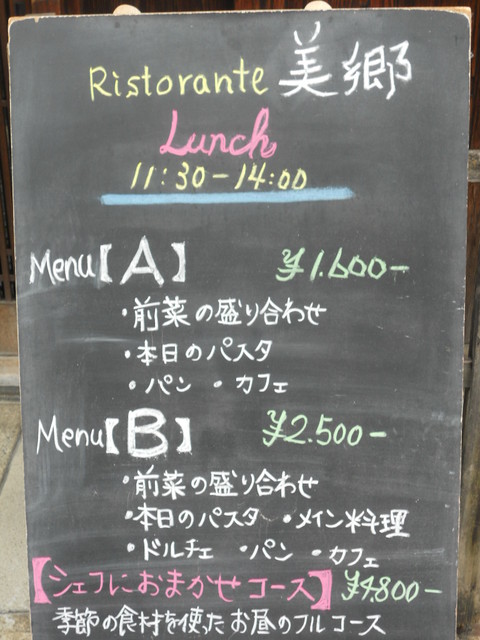 Ristorante 美郷
Lunch
11:30-14:00
Menu【A】 ¥1.600-
・前菜の盛り合わせ
・本日のパスタ
・パン ・カフェ
Menu【B】 ¥2.500-
・前菜の盛り合わせ
・本日のパスタ ・メイン料理
・ドルチェ ・パン ・カフェ
【シェフにおまかせコース】 ¥4800-
季節の食材を使ったお昼のフルコース